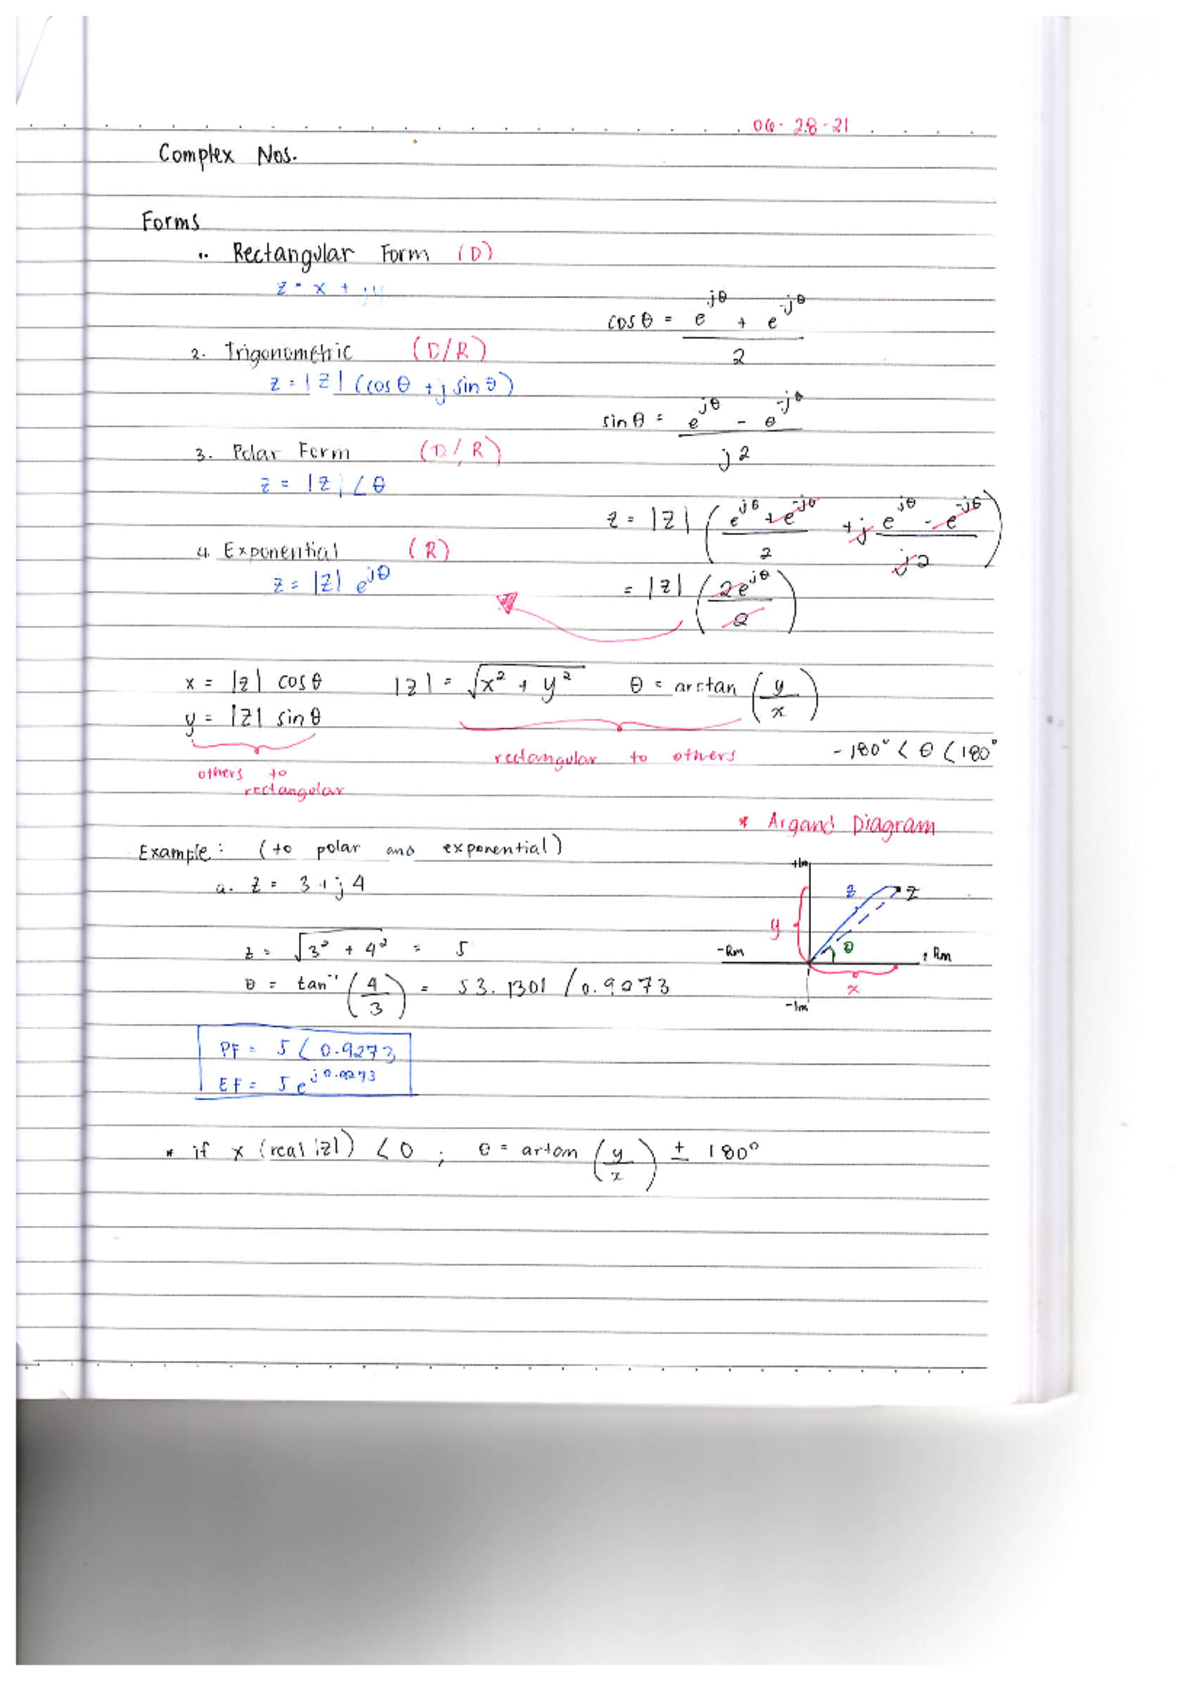 06-28-21
Complex Nos.
Forms
1. Rectangular Form (D)
z = x + jy
2. Trigonometric (D/R)
z = |z| (cos θ + j sin θ)
3. Polar Form (D/R)
z = |z| ∠ θ
4. Exponential (R)
z = |z| e^jθ
cos θ = (e^jθ + e^-jθ) / 2
sin θ = (e^jθ - e^-jθ) / j2
z = |z| ( (e^jθ + e^-jθ) / 2 + j (e^jθ - e^-jθ) / j2 )
= |z| ( 2e^jθ / 2 )
x = |z| cos θ
y = |z| sin θ
others to
rectangular
|z| = √(x² + y²) θ = arctan (y/x)
rectangular to others
-180° < θ < 180°
* Argand Diagram
+Im
y
z
z
θ
-Rm
+Rm
x
-Im
Example: (to polar and exponential)
a. z = 3 + j4
z = √(3² + 4²) = 5
θ = tan⁻¹ (4/3) = 53.1301 / 0.9273
PF = 5 ∠ 0.9273
EF = 5 e^j0.9273
* if x (real |z|) < 0 ; θ = artan (y/x) ± 180°